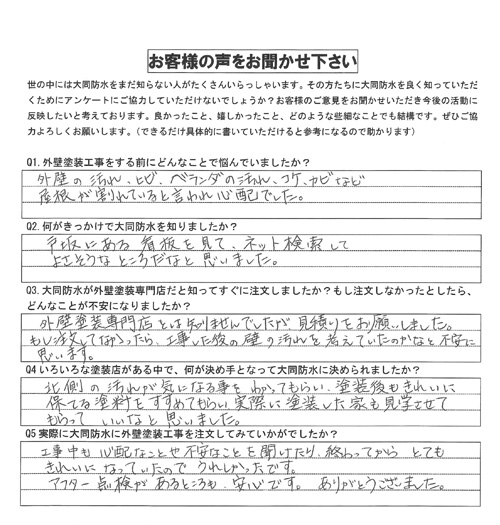 お客様の声をお聞かせ下さい
世の中には大同防水をまだ知らない人がたくさんいらっしゃいます。その方たちに大同防水を良く知っていただ
くためにアンケートにご協力していただけないでしょうか？お客様のご意見をお聞かせいただき今後の活動に
反映したいと考えております。良かったこと、嬉しかったこと、どのような些細なことでも結構です。ぜひご協
力よろしくお願いします。（できるだけ具体的に書いていただけると参考になるので助かります）
Q1. 外壁塗装工事をする前にどんなことで悩んでいましたか？
外壁の汚れ、ヒビ、ベランダの汚れ、コケ、カビなど
屋根が割れていると言われ心配でした。
Q2. 何がきっかけで大同防水を知りましたか？
戸坂にある看板を見て、ネット検索して
よさそうなところだなと思いました。
Q3. 大同防水が外壁塗装専門店だと知ってすぐに注文しましたか？もし注文しなかったとしたら、
どんなことが不安になりましたか？
外壁塗装専門店とは知りませんでしたが、見積りをお願いしました。
もし注文してなかったら、工事した後の壁の汚れを考えていたのかなと不安に
思います。
Q4 いろいろな塗装店がある中で、何が決め手となって大同防水に決められましたか？
北側の汚れが気になる事をわかってもらい、塗装後もきれいに
保てる塗料をすすめてもらい実際に塗装した家も見学させて
もらっていいなと思いました。
Q5 実際に大同防水に外壁塗装工事を注文してみていかがでしたか？
工事中も心配なことや不安なことを聞けたり、終わってからとても
きれいになっていたのでうれしかったです。
アフター点検があるところも、安心です。ありがとうございました。